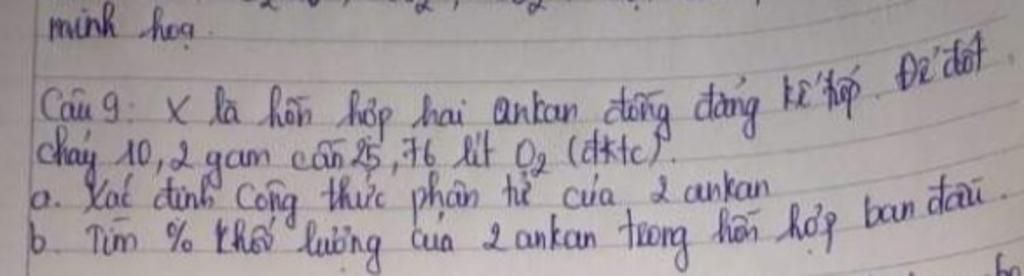 minh hoạ.
Câu 9: X là hỗn hợp hai ankan đồng đẳng kế tiếp. Để đốt
cháy 10,2 gam cần 25,76 lít O2 (đktc).
a. Xác định công thức phân tử của 2 ankan
b. Tìm % khối lượng của 2 ankan trong hỗn hợp ban đầu.